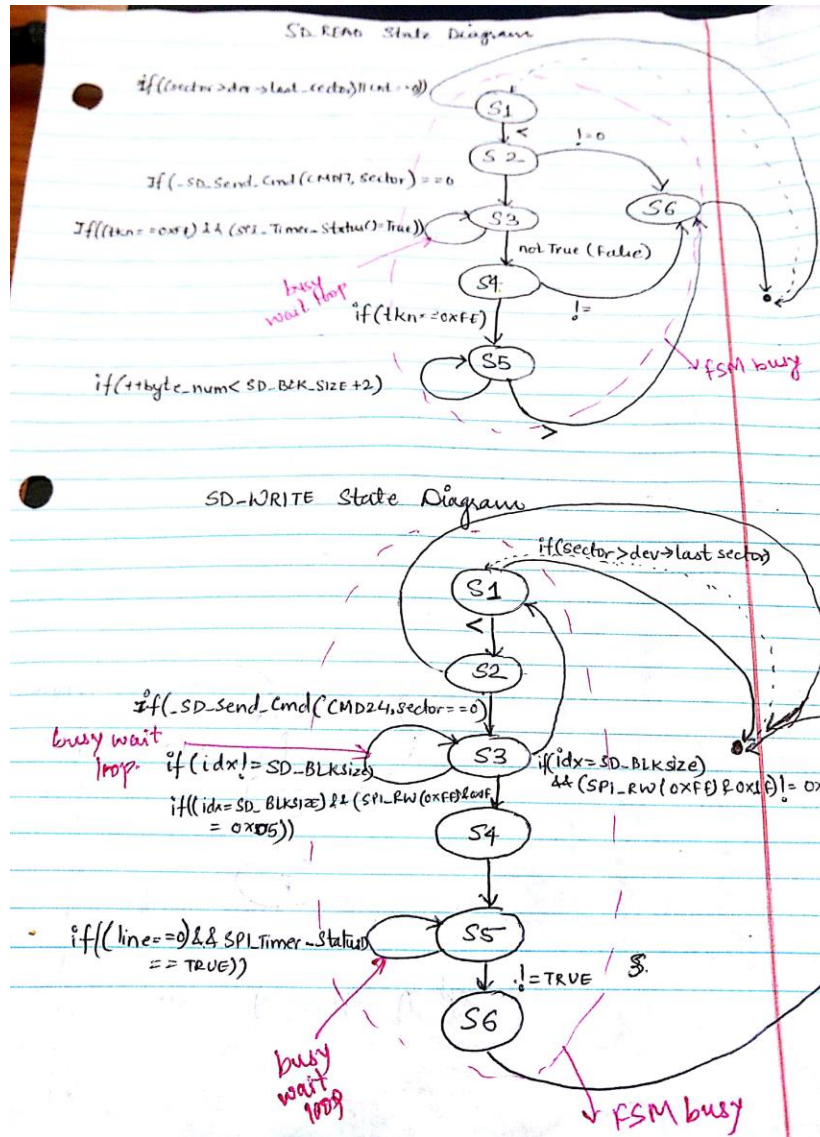 SD_READ State Diagram
if((sector>dev->last_sector)||cnt==0))
S1
<
!=0
S2
If(_SD_Send_Cmd(CMD17, Sector)==0
S6
S3
If((tkn==0xFF) && (SPI_Timer_Status()=True))
not True (False)
busy
wait loop
S4
!=
if(tkn==0xFE)
FSM busy
S5
if(++byte_num< SD_BLK_SIZE+2)
>
SD-WRITE State Diagram
if(sector>dev->last sector)
S1
<
S2
If(_SD_Send_Cmd(CMD24,sector==0)
busy wait
loop.
if(idx!=SD_BLKSize)
S3
if(idx=SD_BLKsize)
&&(SPI_RW(0xFF)&0x1F)!=0x
if((idx=SD_BLKsize)&&(SPI_RW(0xFF)&0x1F
=0x05))
S4
if((line==0)&&SPI_Timer_Status()
== TRUE))
S5
!=TRUE
S6
busy
wait
loop
FSM busy